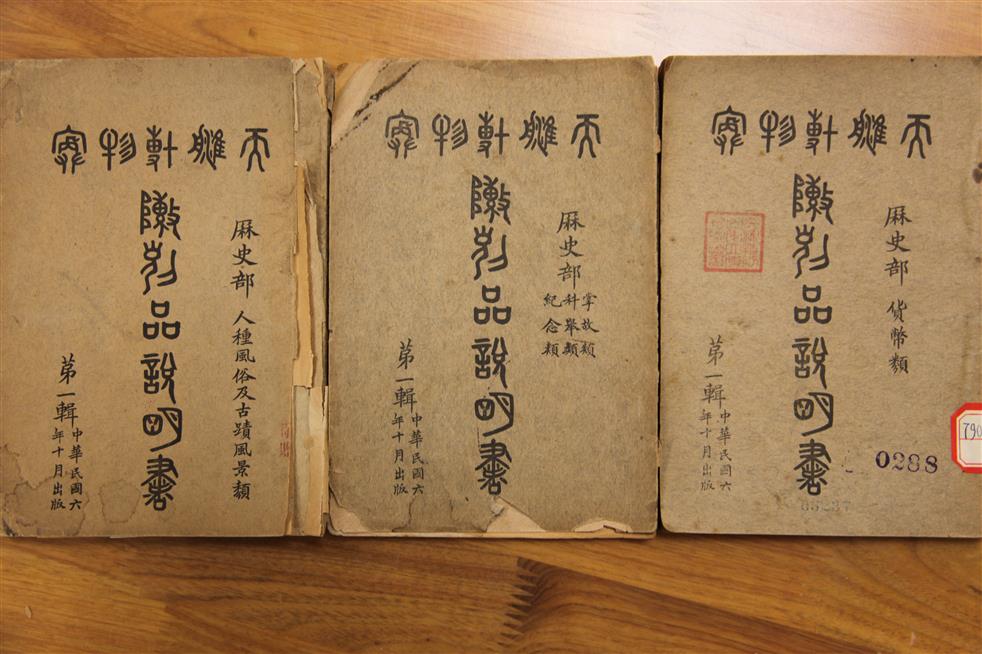 天津博物院
厤史部 人種風俗及古蹟風景類
陳列品說明書
第一輯
中華民國六
年十月出版
天津博物院
厤史部
掌故類
科舉類
紀念類
陳列品說明書
第一輯
中華民國六
年十月出版
天津博物院
厤史部 貨幣類
陳列品說明書
第一輯
中華民國六
年十月出版
0288
790